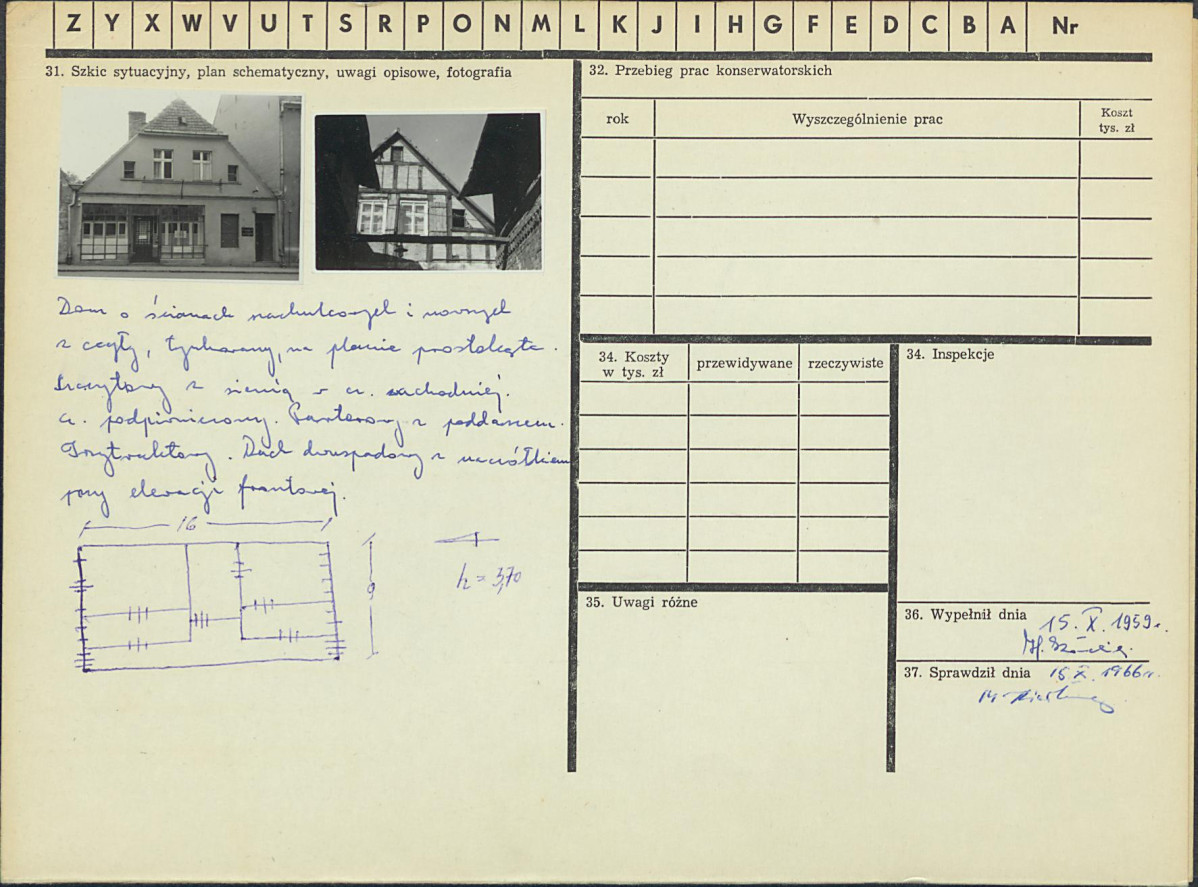 Z Y X W V U T S R P O N M L K J I H G F E D C B A Nr
31. Szkic sytuacyjny, plan schematyczny, uwagi opisowe, fotografia
Dom o ścianach szachulcowych i nowszych
z cegły, tynkowany, na planie prostokąta.
Szczytowy z sienią w cz. zachodniej.
cz. podpiwniczony. Parterowy z poddaszem.
Trzytraktowy. Dach dwuspadowy z naczółkiem
przy elewacji frontowej.
16
9
h = 3,70
32. Przebieg prac konserwatorskich
rok Wyszczególnienie prac Koszt
tys. zł
34. Koszty
w tys. zł przewidywane rzeczywiste
34. Inspekcje
35. Uwagi różne
36. Wypełnił dnia 15. X. 1959 r.
37. Sprawdził dnia 15 X. 1966 r.